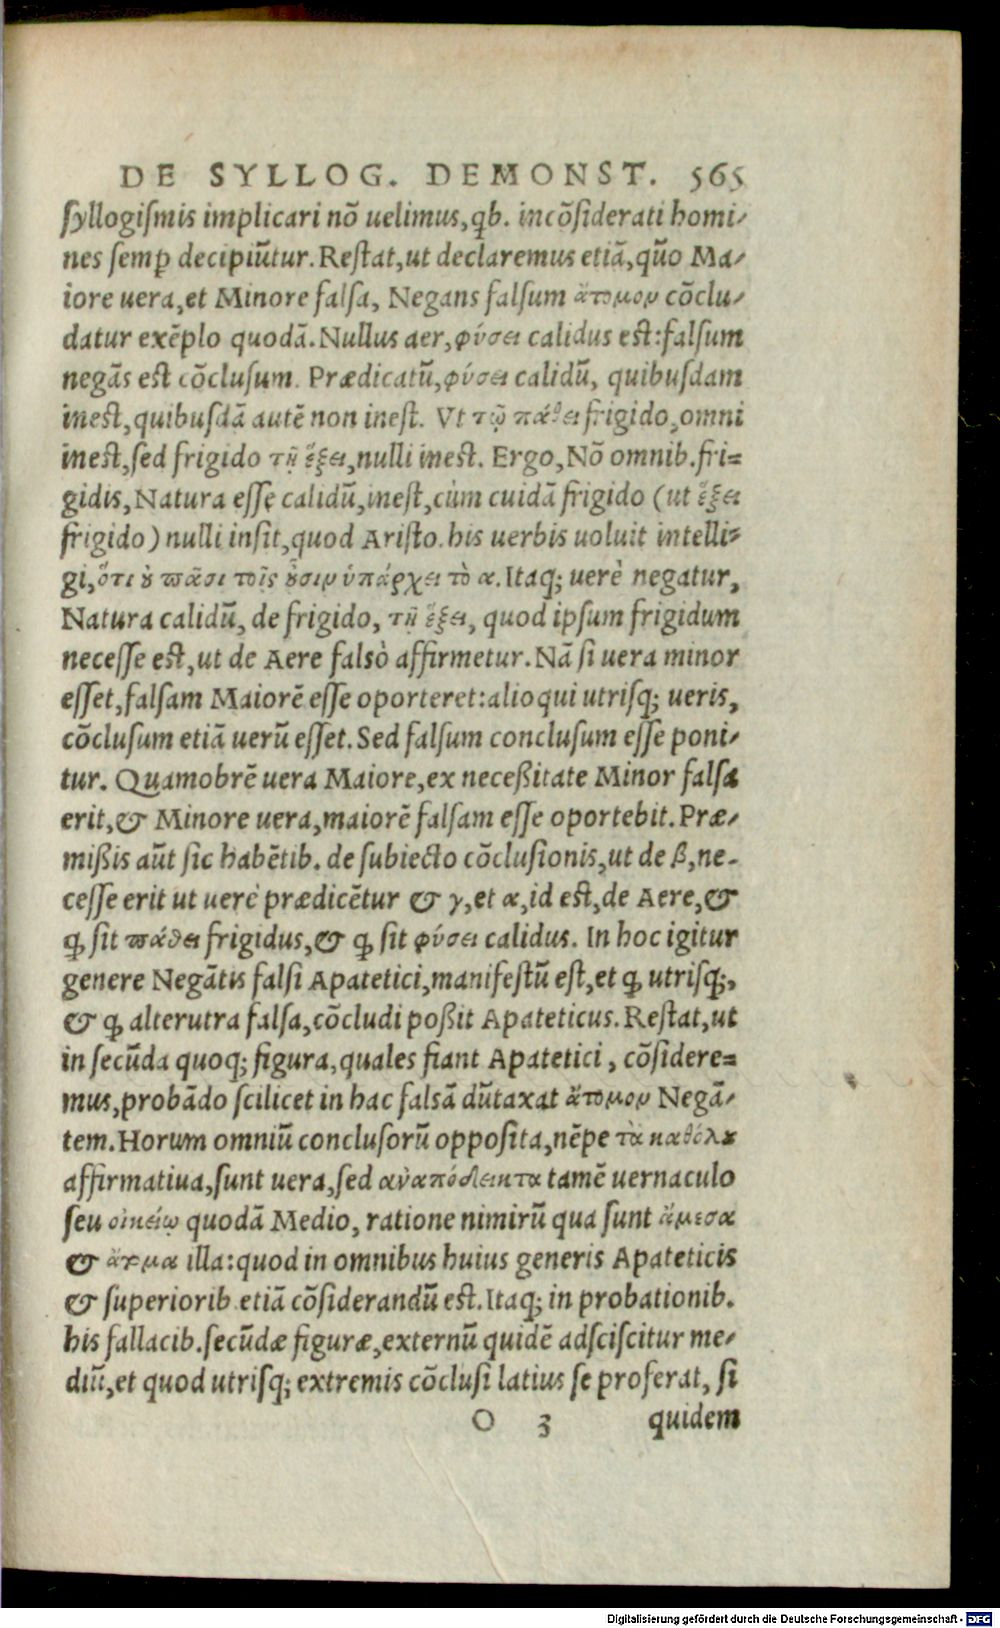 DE SYLLOG. DEMONST. 565
syllogismis implicari nõ uelimus, qb. incõsiderati homi-
nes semp decipiũtur. Restat, ut declaremus etiã, quo Ma-
iore uera, et Minore falsa, Negans falsum ἄτομον cõclu-
datur exẽplo quodã. Nullus aer, φύσει calidus est: falsum
negãs est cõclusum. Prædicatũ, φύσει calidũ, quibusdam
inest, quibusdã autẽ non inest. Vt τῷ πάθει frigido, omni
inest, sed frigido τῇ ἕξει, nulli inest. Ergo, Nõ omnib. fri=
gidis, Natura esse calidũ, inest, cùm cuidã frigido (ut ἕξει
frigido) nulli insit, quod Aristo. his uerbis uoluit intelli=
gi, ὅτι ȣ πᾶσι τοῖς ȣ̓σιν ὑπάρχει τὸ α. Itaq; uerè negatur,
Natura calidũ, de frigido, τῇ ἕξει, quod ipsum frigidum
necesse est, ut de Aere falsò affirmetur. Nã si uera minor
esset, falsam Maiorẽ esse oporteret: alioqui utrisq; ueris,
cõclusum etiã uerũ esset. Sed falsum conclusum esse poni-
tur. Quamobrẽ uera Maiore, ex neceßitate Minor falsa
erit, & Minore uera, maiorẽ falsam esse oportebit. Præ-
mißis aũt sic habẽtib. de subiecto cõclusionis, ut de β, ne-
cesse erit ut uerè prædicẽtur & γ, et α, id est, de Aere, &
ꝙ sit πάθει frigidus, & ꝙ sit φύσει calidus. In hoc igitur
genere Negãtis falsi Apatetici, manifestũ est, et ꝙ utrisq;,
& ꝙ alterutra falsa, cõcludi poßit Apateticus. Restat, ut
in secũda quoq; figura, quales fiant Apatetici, cõsidere=
mus, probãdo scilicet in hac falsã dũtaxat ἄτομον Negã-
tem. Horum omniũ conclusorũ opposita, nẽpe τὰ καθόλȣ
affirmatiua, sunt uera, sed ἀναπόδεικτα tamẽ uernaculo
seu οἰκείῳ quodã Medio, ratione nimirũ qua sunt ἄμεσα
& ἄτμα illa: quod in omnibus huius generis Apateticis
& superiorib. etiã cõsiderandũ est. Itaq; in probationib.
his fallacib. secũdæ figuræ, externũ quidẽ adsciscitur me-
diũ, et quod utrisq; extremis cõclusi latius se proferat, si
O 3 quidem
Digitalisierung gefördert durch die Deutsche Forschungsgemeinschaft - DFG